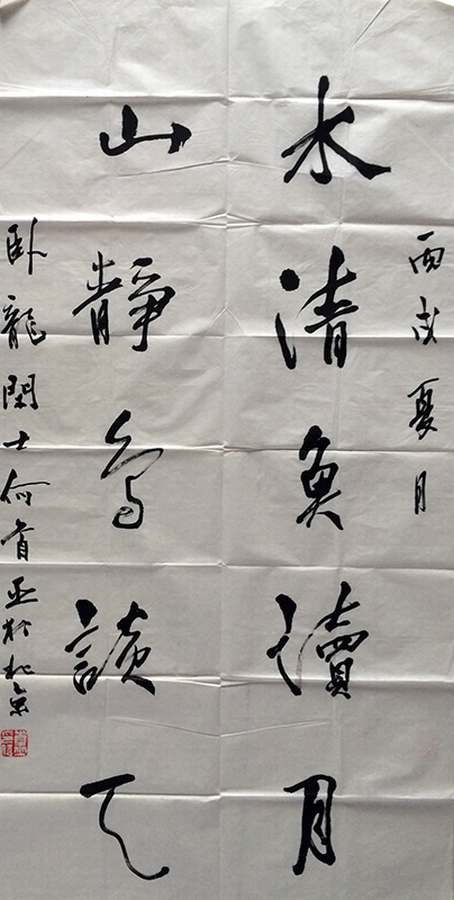 丙戌夏月
水清魚讀月
山靜鳥談天
卧龍閑士何首亞於北京